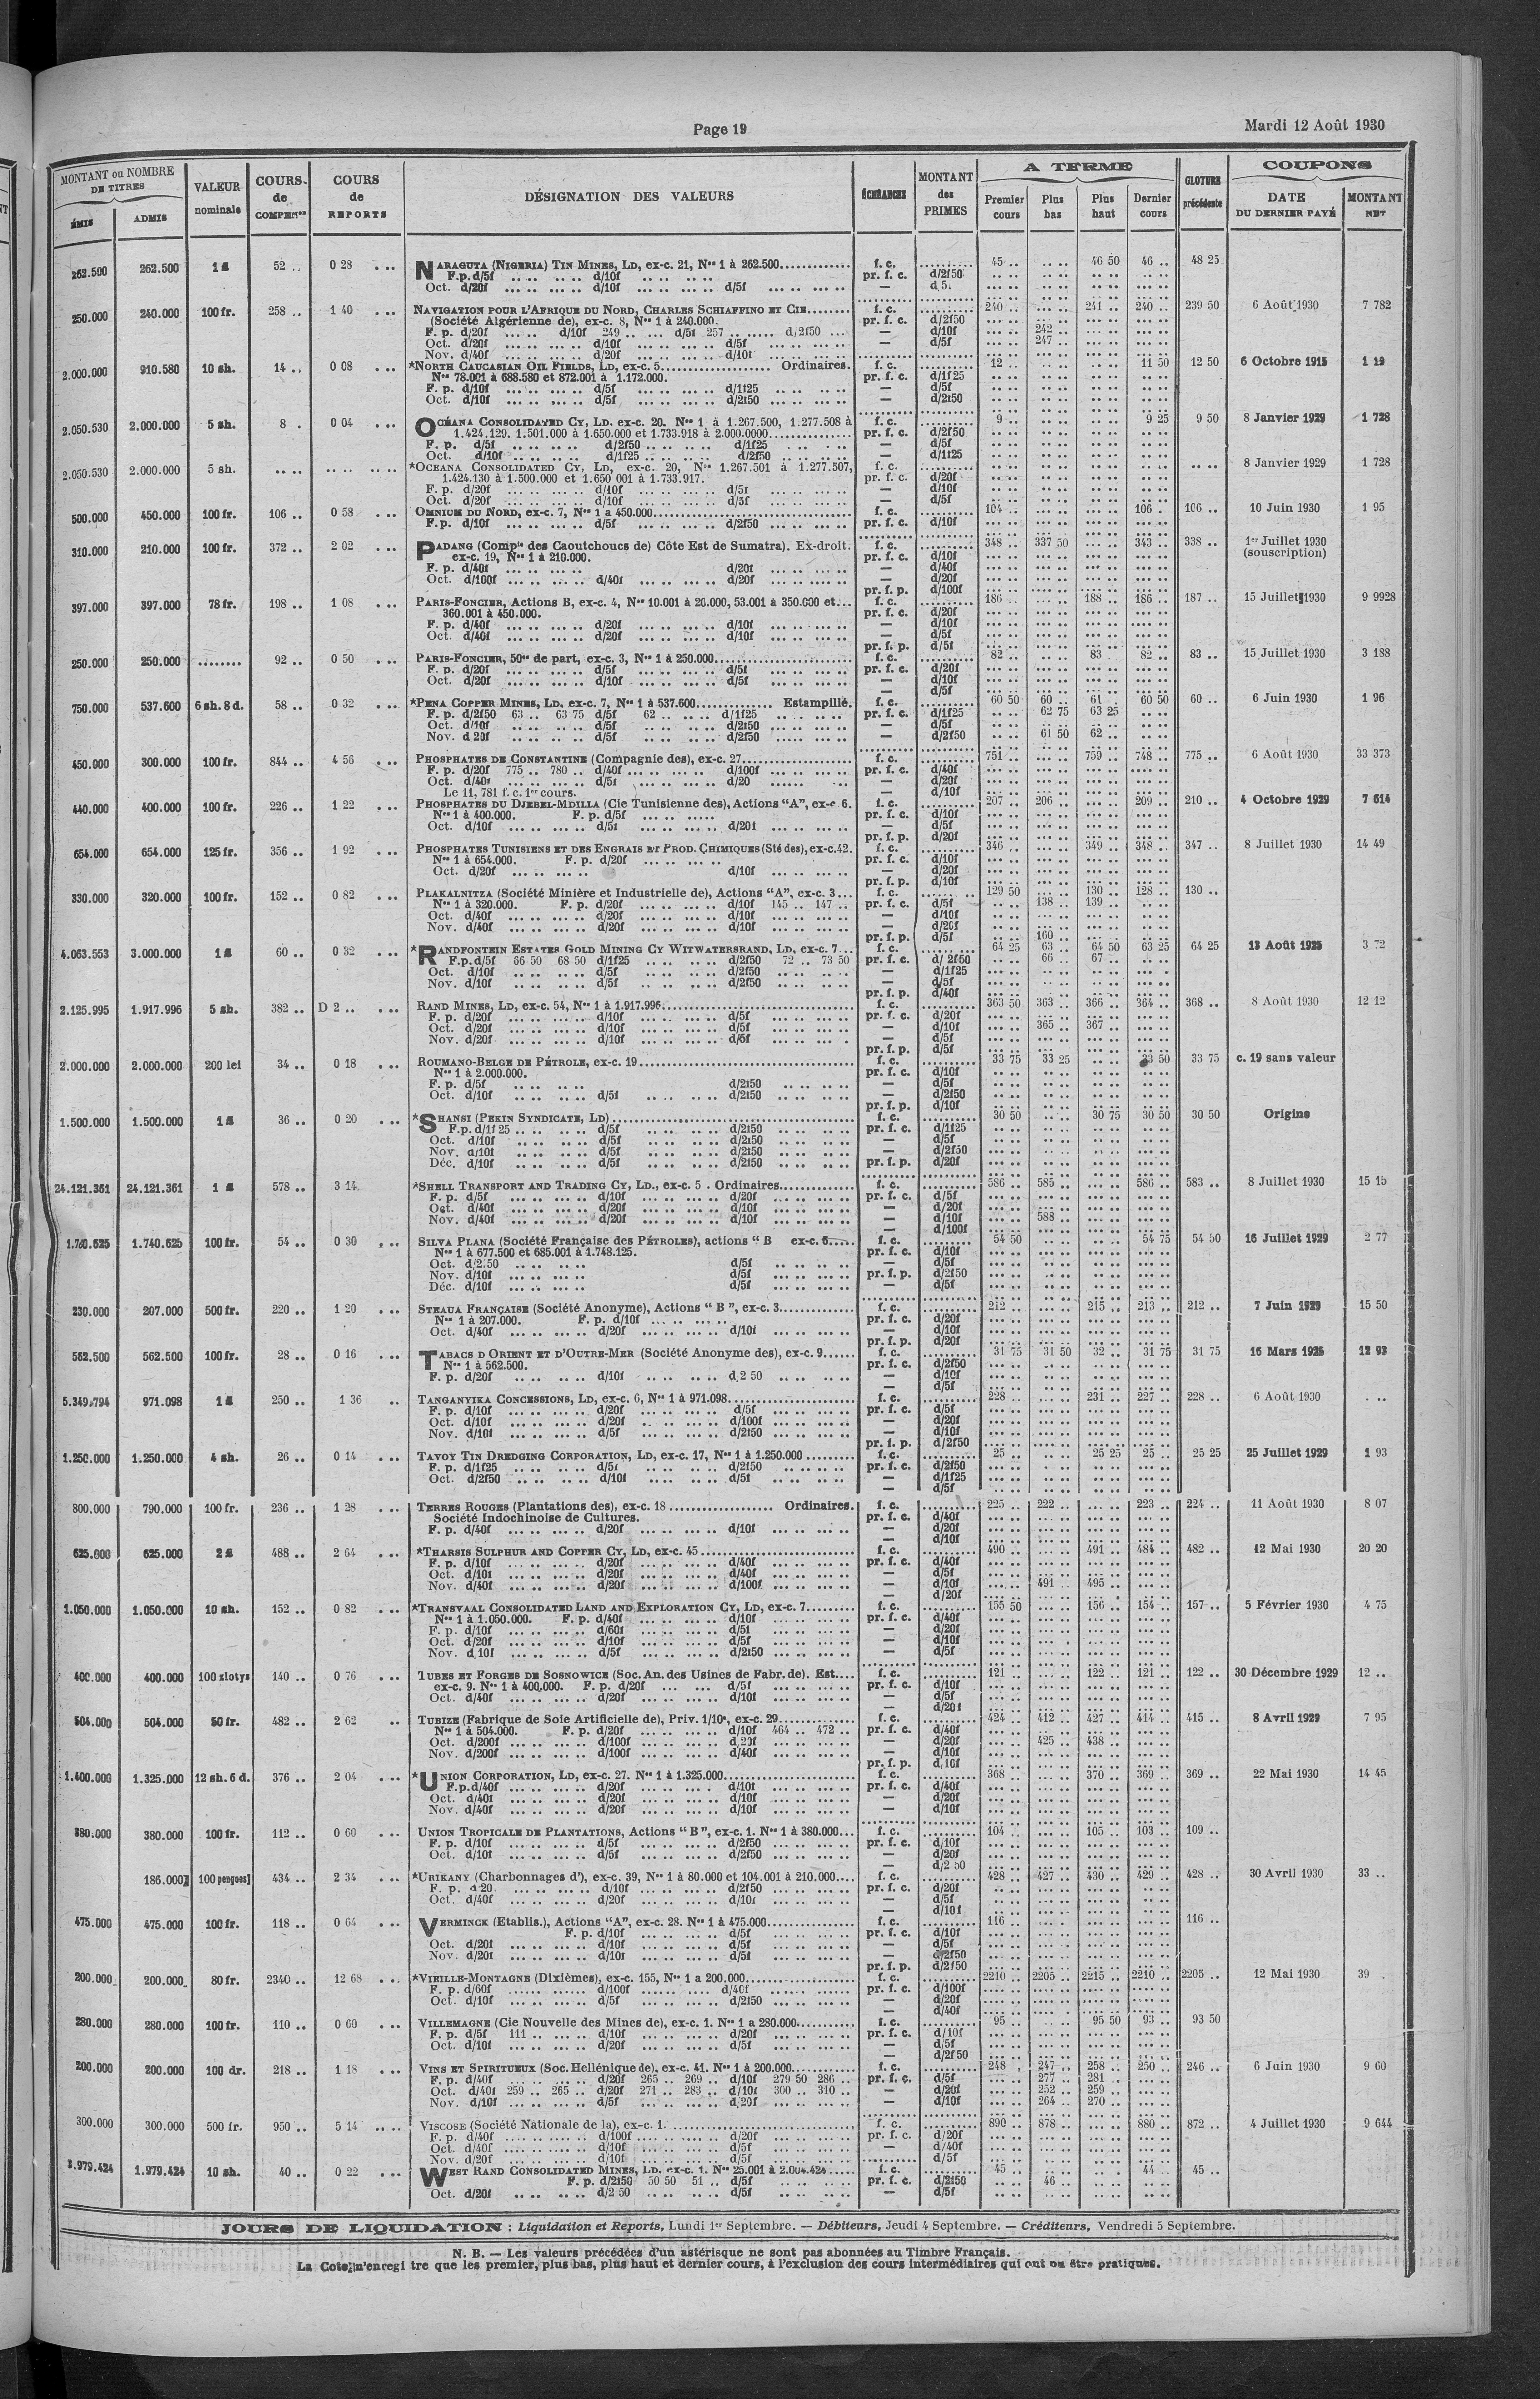 Page 19
Mardi 12 Août 1930
MONTANT ou NOMBRE DE TITRES
ÉMIS ADMIS
VALEUR nominale
COURS de COMPENon
COURS de REPORTS
DÉSIGNATION DES VALEURS
ÉCHÉANCES
MONTANT des PRIMES
A TERME
Premier cours Plus bas Plus haut Dernier cours
CLOTURE précédente
COUPONS
DATE DU DERNIER PAYÉ MONTANT NET
262.500 262.500 1 £ 52 .. 0 28 NARAGUTA (NIGERIA) TIN MINES, LD, ex-c. 21, Nos 1 à 262.500 f. c. 45 .. 46 50 46 .. 48 25
F.p. d/5f d/10f pr. f. c. d/2f50
Oct. d/20f d/10f d/5f —
250.000 240.000 100 fr. 258 .. 1 40 NAVIGATION POUR L'AFRIQUE DU NORD, CHARLES SCHIAFFINO ET CIE f. c. 240 .. 241 .. 240 .. 239 50 6 Août 1930 7 782
(Société Algérienne de), ex-c. 8, Nos 1 à 240.000. pr. f. c. d/2f50
F. p. d/20f d/10f 249 .. d/5f 257 .. d/2f50 — d/10f 242 ..
Oct. d/20f d/10f d/5f — d/5f 247 ..
Nov. d/40f d/20f d/10f
2.000.000 910.580 10 sh. 14 .. 0 08 *NORTH CAUCASIAN OIL FIELDS, LD, ex-c. 5 Ordinaires. f. c. 12 .. 11 50 12 50 6 Octobre 1915 1 19
Nos 78.001 à 688.580 et 872.001 à 1.172.000. pr. f. c. d/1f25
F. p. d/10f d/5f d/1f25 — d/5f
Oct. d/10f d/5f d/2f50 — d/2f50
2.050.530 2.000.000 5 sh. 8 . 0 04 OCÉANA CONSOLIDATED CY, LD. ex-c. 20. Nos 1 à 1.267.500, 1.277.508 à f. c. 9 .. 9 25 9 50 8 Janvier 1929 1 728
1.424.129. 1.501.000 à 1.650.000 et 1.733.918 à 2.000.0000 pr. f. c. d/2f50
F. p. d/5f d/2f50 d/1f25 — d/5f
Oct. d/10f d/1f25 d/2f50 — d/1f25
2.050.530 2.000.000 5 sh. *OCEANA CONSOLIDATED CY, LD, ex-c. 20, Nos 1.267.501 à 1.277.507, f. c. 8 Janvier 1929 1 728
1.424.130 à 1.500.000 et 1.650 001 à 1.733.917. pr. f. c. d/20f
F. p. d/20f d/10f d/5f — d/10f
Oct. d/20f d/10f d/5f — d/5f
500.000 450.000 100 fr. 106 .. 0 58 OMNIUM DU NORD, ex-c. 7, Nos 1 a 450.000 f. c. 104 .. 106 . 106 .. 10 Juin 1930 1 95
F. p. d/10f d/5f d/2f50 pr. f. c. d/10f
310.000 210.000 100 fr. 372 .. 2 02 PADANG (Compie des Caoutchoucs de) Côte Est de Sumatra). Ex-droit. f. c. 348 .. 337 50 343 .. 338 .. 1er Juillet 1930
ex-c. 19, Nos 1 à 210.000. pr. f. c. d/10f (souscription)
F. p. d/40f d/20f — d/40f
Oct. d/100f d/40f d/20f — d/20f
pr. f. p. d/100f
397.000 397.000 78 fr. 198 .. 1 08 PARIS-FONCIER, Actions B, ex-c. 4, Nos 10.001 à 20.000, 53.001 à 350.000 et... f. c. 186 .. 188 .. 186 .. 187 .. 15 Juillet 1930 9 9928
360.001 à 450.000. pr. f. c. d/20f
F. p. d/40f d/20f d/10f — d/10f
Oct. d/40f d/20f d/10f — d/5f
pr. f. p. d/5f
250.000 250.000 92 .. 0 50 PARIS-FONCIER, 50es de part, ex-c. 3, Nos 1 à 250.000 f. c. 82 .. 83 . 82 .. 83 .. 15 Juillet 1930 3 188
F. p. d/20f d/5f d/5f pr. f. c. d/20f
Oct. d/20f d/10f d/5f — d/10f
— d/5f
750.000 537.600 6 sh. 8 d. 58 .. 0 32 *PENA COPPER MINES, LD, ex-c. 7, Nos 1 à 537.600 Estampillé. f. c. 60 50 60 .. 61 . 60 50 60 .. 6 Juin 1930 1 96
F. p. d/2f50 63 .. 63 75 d/5f 62 .. d/1f25 pr. f. c. d/1f25 62 75 63 25
Oct. d/10f d/5f d/2f50 — d/5f
Nov. d 20f d/5f d/2f50 — d/2f50 61 50 62 ..
450.000 300.000 100 fr. 844 .. 4 56 PHOSPHATES DE CONSTANTINE (Compagnie des), ex-c. 27 f. c. 751 .. 759 .. 748 .. 775 .. 6 Août 1930 33 373
F. p. d/20f 775 .. 780 .. d/40f d/100f pr. f. c. d/40f
Oct. d/40f d/5f d/20 — d/20f
Le 11, 781 f. c. 1er cours. — d/10f
440.000 400.000 100 fr. 226 .. 1 22 PHOSPHATES DU DJEBEL-MDILLA (Cie Tunisienne des), Actions "A", ex-c 6. f. c. 207 .. 206 .. 209 .. 210 .. 4 Octobre 1929 7 614
Nos 1 à 400.000. F. p. d/5f pr. f. c. d/10f
Oct. d/10f d/5f d/20f — d/5f
pr. f. p. d/20f
654.000 654.000 125 fr. 356 .. 1 92 PHOSPHATES TUNISIENS ET DES ENGRAIS ET PROD. CHIMIQUES (Sté des), ex-c. 42. f. c. 346 .. 349 .. 348 .. 347 .. 8 Juillet 1930 14 49
Nos 1 à 654.000. F. p. d/20f pr. f. c. d/10f
Oct. d/20f d/10f — d/20f
pr. f. p. d/10f
330.000 320.000 100 fr. 152 .. 0 82 PLAKALNITZA (Société Minière et Industrielle de), Actions "A", ex-c. 3 f. c. 129 50 130 . 128 .. 130 ..
Nos 1 à 320.000. F. p. d/20f d/10f 145 .. 147 .. pr. f. c. d/5f 138 .. 139 ..
Oct. d/40f d/20f d/10f — d/10f
Nov. d/40f d/20f d/10f — d/20f
pr. f. p. d/5f 160 ..
4.063.553 3.000.000 1 £ 60 .. 0 32 *RANDFONTEIN ESTATES GOLD MINING CY WITWATERSRAND, LD, ex-c. 7 f. c. 64 25 63 .. 64 50 63 25 64 25 13 Août 1925 3 72
F.p. d/5f 66 50 68 50 d/1f25 d/2f50 72 .. 73 50 pr. f. c. d/2f50 66 .. 67 ..
Oct. d/10f d/5f d/2f50 — d/1f25
Nov. d/10f d/5f d/2f50 — d/5f
pr. f. p. d/40f
2.125.995 1.917.996 5 sh. 382 .. D 2 .. RAND MINES, LD, ex-c. 54, Nos 1 à 1.917.996 f. c. 363 50 363 .. 366 .. 364 .. 368 .. 8 Août 1930 12 12
F. p. d/20f d/10f d/5f pr. f. c. d/20f
Oct. d/20f d/10f d/5f — d/10f 365 .. 367 ..
Nov. d/20f d/10f d/5f — d/5f
pr. f. p. d/5f
2.000.000 2.000.000 200 lei 34 .. 0 18 ROUMANO-BELGE DE PÉTROLE, ex-c. 19 f. c. 33 75 33 25 33 50 33 75 c. 19 sans valeur
Nos 1 à 2.000.000. pr. f. c. d/10f
F. p. d/5f d/2f50 — d/5f
Oct. d/10f d/5f d/2f50 — d/2f50
pr. f. p. d/10f
1.500.000 1.500.000 1 £ 36 .. 0 20 *SHANSI (PEKIN SYNDICATE, LD) f. c. 30 50 30 75 30 50 30 50 Origine
F.p. d/1f 25 d/5f d/2f50 pr. f. c. d/1f25
Oct. d/10f d/5f d/2f50 — d/5f
Nov. d/10f d/5f d/2f50 — d/2f50
Déc. d/10f d/5f d/2f50 pr. f. p. d/20f
24.121.361 24.121.361 1 £ 578 .. 3 14 *SHELL TRANSPORT AND TRADING CY, LD., ex-c. 5 . Ordinaires f. c. 586 .. 585 .. 586 .. 583 .. 8 Juillet 1930 15 15
F. p. d/5f d/10f d/20f pr. f. c. d/5f
Oct. d/40f d/20f d/10f — d/20f
Nov. d/40f d/20f d/10f — d/10f 588 ..
— d/100f
1.740.625 1.740.625 100 fr. 54 .. 0 30 SILVA PLANA (Société Française des PÉTROLES), actions " B ex-c. 6 f. c. 54 50 54 75 54 50 16 Juillet 1929 2 77
Nos 1 à 677.500 et 685.001 à 1.748.125. pr. f. c. d/10f
Oct. d/2.50 d/5f — d/5f
Nov. d/10f d/5f pr. f. p. d/2f50
Déc. d/10f d/5f — d/5f
230.000 207.000 500 fr. 220 .. 1 20 STEAUA FRANÇAISE (Société Anonyme), Actions " B ", ex-c. 3 f. c. 212 .. 215 .. 213 .. 212 .. 7 Juin 1929 15 50
Nos 1 à 207.000. F. p. d/10f pr. f. c. d/20f
Oct. d/40f d/20f d/10f — d/10f
pr. f. p. d/20f
562.500 562.500 100 fr. 28 .. 0 16 TABACS D ORIENT ET D'OUTRE-MER (Société Anonyme des), ex-c. 9 f. c. 31 75 31 50 32 .. 31 75 31 75 16 Mars 1925 12 93
Nos 1 à 562.500. pr. f. c. d/2f50
F. p. d/20f d/10f d 2 50 — d/10f
— d/5f
5.349.794 971.098 1 £ 250 .. 1 36 TANGANYIKA CONCESSIONS, LD, ex-c. 6, Nos 1 à 971.098 f. c. 228 .. 231 .. 227 .. 228 .. 6 Août 1930
F. p. d/10f d/20f d/5f pr. f. c. d/5f
Oct. d/10f d/20f d/100f — d/20f
Nov. d/10f d/5f d/2f50 — d/10f
pr. f. p. d/2f50
1.250.000 1.250.000 4 sh. 26 .. 0 14 TAVOY TIN DREDGING CORPORATION, LD, ex-c. 17, Nos 1 à 1.250.000 f. c. 25 .. 25 25 25 .. 25 25 25 Juillet 1929 1 93
F. p. d/1f25 d/5f d/2f50 pr. f. c. d/2f50
Oct. d/2f50 d/10f d/5f — d/1f25
— d/5f
800.000 790.000 100 fr. 236 .. 1 28 TERRES ROUGES (Plantations des), ex-c. 18 Ordinaires. f. c. 225 .. 222 .. 223 .. 224 .. 11 Août 1930 8 07
Société Indochinoise de Cultures. pr. f. c. d/40f
F. p. d/40f d/20f d/10f — d/20f
— d/10f
625.000 625.000 2 £ 488 .. 2 64 *THARSIS SULPHUR AND COPPER CY, LD, ex-c. 45 f. c. 490 .. 491 .. 484 .. 482 .. 12 Mai 1930 20 20
F. p. d/10f d/20f d/40f pr. f. c. d/40f
Oct. d/10f d/20f d/40f — d/5f
Nov. d/40f d/20f d/100f — d/10f 491 .. 495 ..
— d/20f
1.050.000 1.050.000 10 sh. 152 .. 0 82 *TRANSVAAL CONSOLIDATED LAND AND EXPLORATION CY, LD, ex-c. 7 f. c. 155 50 156 . 154 .. 157 .. 5 Février 1930 4 75
Nos 1 à 1.050.000. F. p. d/40f d/10f pr. f. c. d/40f
F. p. d/10f d/60f d/5f — d/20f
Oct. d/20f d/10f d/5f — d/10f
Nov. d 10f d/5f d/2f50 — d/5f
400.000 400.000 100 zlotys 140 .. 0 76 TUBES ET FORGES DE SOSNOWICE (Soc. An. des Usines de Fabr. de). Est. f. c. 121 .. 122 .. 121 .. 122 .. 30 Décembre 1929 12 ..
ex-c. 9. Nos 1 à 400.000. F. p. d/20f d/5f pr. f. c. d/10f
Oct. d/40f d/20f d/10f — d/5f
— d/20f
504.000 504.000 50 fr. 482 .. 2 62 TUBIZE (Fabrique de Soie Artificielle de), Priv. 1/10e, ex-c. 29 f. c. 424 .. 412 .. 427 .. 414 .. 415 .. 8 Avril 1929 7 95
Nos 1 à 504.000. F. p. d/20f d/10f 464 .. 472 .. pr. f. c. d/40f
Oct. d/200f d/100f d 20f — d/20f 425 .. 438 ..
Nov. d/200f d/100f d/40f — d/10f
pr. f. p. d 10f
1.400.000 1.325.000 12 sh. 6 d. 376 .. 2 04 *UNION CORPORATION, LD, ex-c. 27. Nos 1 à 1.325.000 f. c. 368 .. 370 .. 369 .. 369 .. 22 Mai 1930 14 45
F.p. d/40f d/20f d/10f pr. f. c. d/40f
Oct. d/40f d/20f d/10f — d/20f
Nov. d/40f d/20f d/10f — d/10f
380.000 380.000 100 fr. 112 .. 0 60 UNION TROPICALE DE PLANTATIONS, Actions " B ", ex-c. 1. Nos 1 à 380.000 f. c. 104 .. 105 .. 103 .. 109 ..
F. p. d/10f d/5f d/2f50 pr. f. c. d/10f
Oct. d/10f d/5f d/2f50 — d/20f
— d/2 50
186.000 100 pengoes 434 .. 2 34 *URIKANY (Charbonnages d'), ex-c. 39, Nos 1 à 80.000 et 104.001 à 210.000 f. c. 428 .. 427 .. 430 .. 429 .. 428 .. 30 Avril 1930 33 ..
F. p. d 20. d/10f d/2f50 pr. f. c. d/20f
Oct. d/40f d/20f d/10f — d/5f
— d/10f
475.000 475.000 100 fr. 118 .. 0 64 VERMINCK (Etablis.), Actions "A", ex-c. 28. Nos 1 à 475.000 f. c. 116 .. 116 ..
F. p. d/10f d/5f pr. f. c. d/10f
Oct. d/20f d/10f d/5f — d/5f
Nov. d/20f d/10f d/5f — d/2f50
pr. f. p. d/2f50
200.000 200.000 80 fr. 2340 .. 12 68 *VIEILLE-MONTAGNE (Dixièmes), ex-c. 155, Nos 1 a 200.000 f. c. 2210 .. 2205 .. 2215 .. 2210 .. 2205 .. 12 Mai 1930 39 .
F. p. d/60f d/100f d/40f pr. f. c. d/100f
Oct. d/10f d/5f d/2f50 — d/20f
— d/40f
280.000 280.000 100 fr. 110 .. 0 60 VILLEMAGNE (Cie Nouvelle des Mines de), ex-c. 1. Nos 1 a 280.000 f. c. 95 .. 95 50 93 .. 93 50
F. p. d/5f 111 .. d/10f d/20f pr. f. c. d/10f
Oct. d/10f d/20f d/5f — d/5f
— d/2f50
200.000 200.000 100 dr. 218 .. 1 18 VINS ET SPIRITUEUX (Soc. Hellénique de), ex-c. 41. Nos 1 à 200.000 f. c. 248 . 247 .. 258 .. 250 .. 246 .. 6 Juin 1930 9 60
F. p. d/40f d/20f 265 .. 269 .. d/10f 279 50 286 .. pr. f. c. d/5f 277 .. 281 ..
Oct. d/40f 259 .. 265 .. d/20f 271 .. 283 .. d/10f 300 .. 310 .. — d/20f 252 .. 259 ..
Nov. d/10f d/5f d 20f — d/10f 264 .. 270 ..
300.000 300.000 500 fr. 950 .. 5 14 VISCOSE (Société Nationale de la), ex-c. 1. f. c. 890 .. 878 .. 880 .. 872 .. 4 Juillet 1930 9 644
F. p. d/40f d/100f d/20f pr. f. c. d/20f
Oct. d/40f d/10f d/5f — d/40f
Nov. d/20f d/10f d/5f d/5f
1.979.424 10 sh. 40 .. 0 22 WEST RAND CONSOLIDATED MINES, LD. ex-c. 1. Nos 25.001 à 2.004.424 f. c. 45 .. 44 .. 45 ..
F. p. d/2f50 50 50 51 .. d/5f pr. f. c. d/2f50 46 ..
Oct. d/20f d/2 50 d/5f — d/5f
JOURS DE LIQUIDATION : Liquidation et Reports, Lundi 1er Septembre. — Débiteurs, Jeudi 4 Septembre. — Créditeurs, Vendredi 5 Septembre.
N. B. — Les valeurs précédées d'un astérisque ne sont pas abonnées au Timbre Français.
La Cote n'enregi tre que les premier, plus bas, plus haut et dernier cours, à l'exclusion des cours intermédiaires qui ont pu être pratiqués.